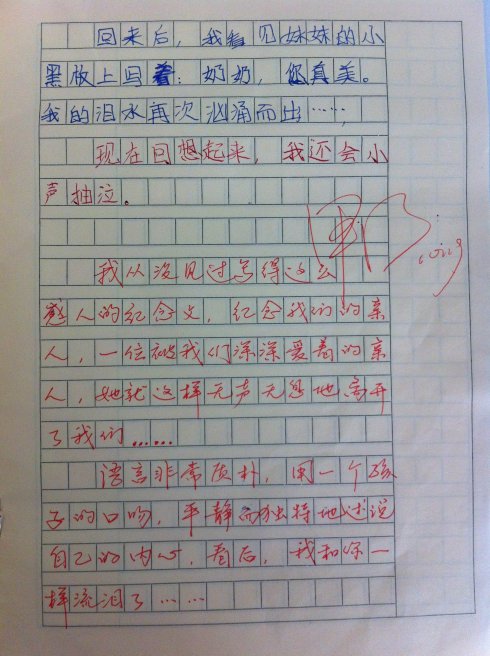 回来后，我看见妹妹的小
黑板上写着：奶奶，您真美。
我的泪水再次汹涌而出……，
现在回想起来，我还会小
声抽泣。
我从没见过写得这么
感人的纪念文，纪念我们的亲
人，一位被我们深深爱着的亲
人，她就这样无声无息地离开
了我们……
语言非常质朴，用一个孩
子的口吻，平静而独特地述说
自己的内心，看后，我和你一
样流泪了……